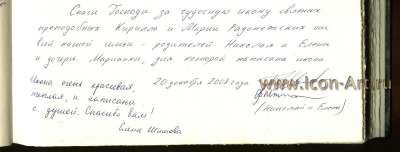 Спаси Господа за чудесную икону святых
преподобных Кирилла и Марии Радонежских
моей нашей семьи - родителей Николая и Елены
и дочери Марианны, для которой написана икона
20 декабря 2008 года
Икона очень красивая,
теплая, и написана
с душой. Спасибо Вам!
(Николай и Елена)
Елена
www.Icon-Art.ru